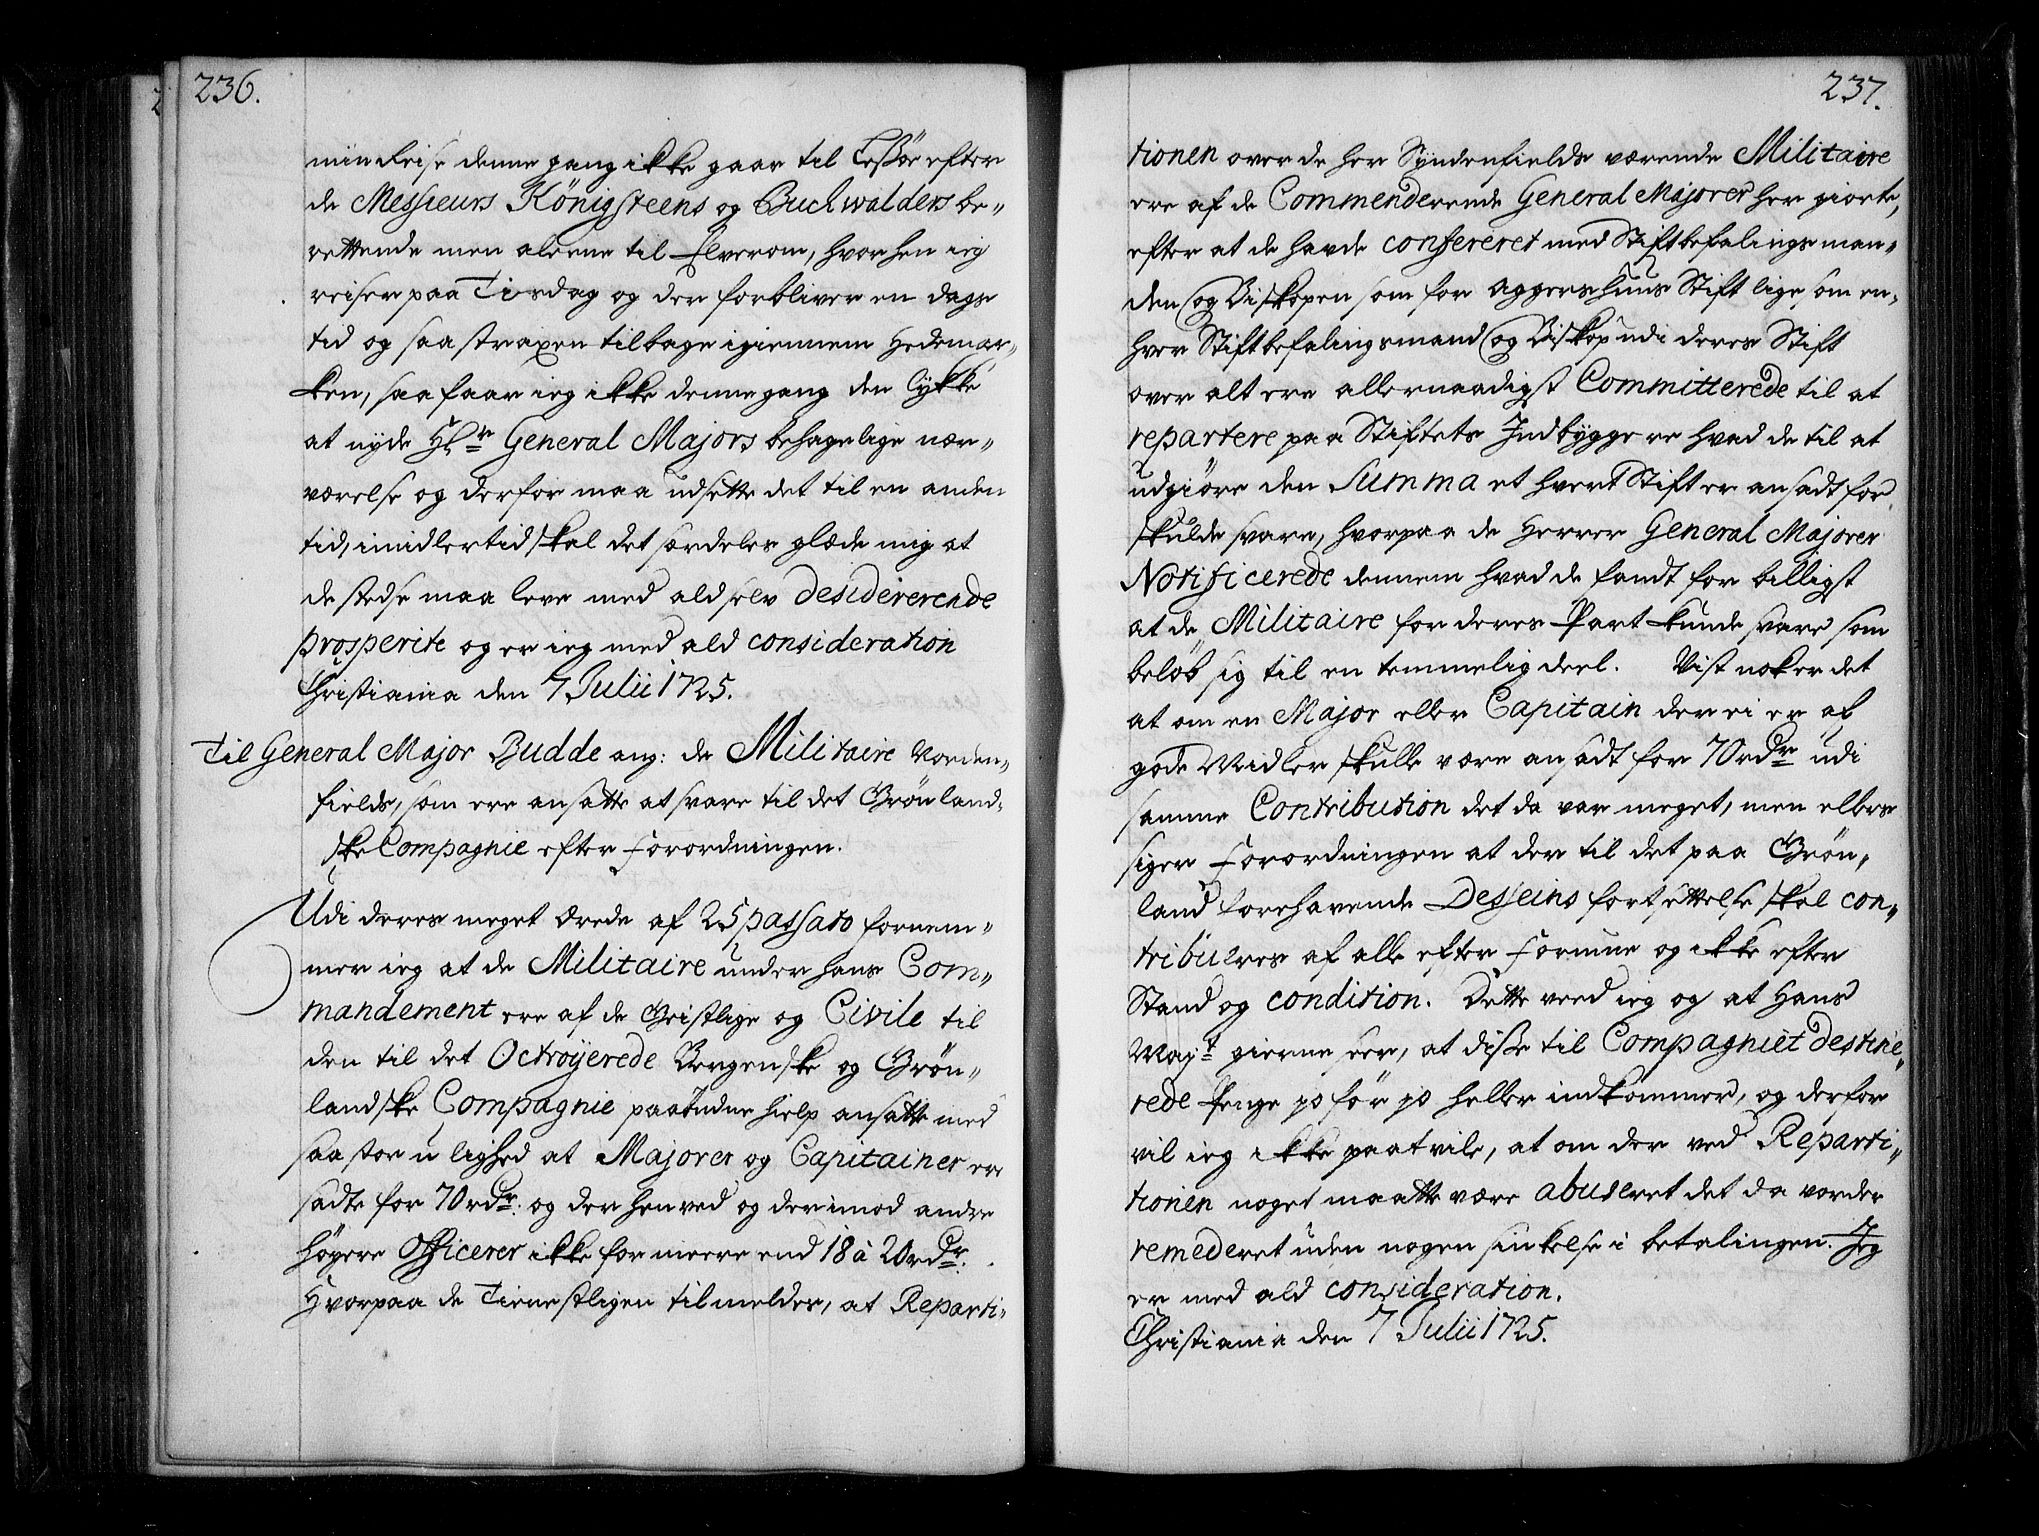 236.
min Reise denne gang ikke gaar til Lessøe efter
de Messieurs Königsteens og Buchwalders be„
rettende men aleene til Elverom, hvorhen ieg
reiser paa Tirsdag og der forbliver en dags
tid og saa straxen tilbage igiennem Hedemar„
ken, saa faar ieg ikke denne gang den lykke
at nyde Hr General Majors behagelige nær„
værelse og derfor maa udsette det til en anden
tid, imidlertid skal det særdeles glæde mig at
de stedse maa leve med ald selv desidererende
prosperite og er ieg med ald consideration
Christiania den 7 Julii 1725.
Til General Major Budde ang: de Militaire Norden„
fields, som ere ansatte at svare til det Grønland„
ske Compagnie efter Forordningen.
Udi deres meget ærede af 25 passato fornem„
mer ieg at de Militaire under hans Com„
mandement ere af de Geistlige og Civile til
den til det Octroyerede Bergenske og Grøn„
landske Compagnie paabudne hielp ansatte med
saa stor u lighed at Majorer og Capitainer ere
sadte for 70 rdr. og der henved og derimod andre
høyere Officerer ikke for meere end 18 à 20 rdr.
Hvorpaa de Tienestligen tilmeldes, at Reparti„
237.
tionen over de her Syndenfields værende Militaire
ere af de Commenderende General Majorer her giorte,
efter at de havde confereret med Stiftbefalingsman„
den og Biskopen som for Aggershuus Stift lige som en„
hver Stiftbefalingsmand og Biskop udi deres Stift
over alt ere allernaadigst Committerede til at
repartere paa Stiftets Indbyggere hvad de til at
udgiøre den Summa et hvert Stift er ansadt for
skulde svare, hvorpaa de Herrer General Majorer
Notificerede dennem hvad de fandt for billigst
at de Militaire for deres Part kunde svare som
beløb sig til en temmelig deel. Vist nok er det
at om en Major eller Capitain der ei er af
gode Midler skulle være ansadt for 70 rdr udi
samme Contribution det da var meget, men ellers
siger Forordningen at der til det paa Grøn„
land forehavende Desseins fortsettelse skal con„
tribueres af alle efter Formue og ikke efter
Stand og condition. Dette veed ieg og at Hans
Mayt gierne seer, at disse til Compagniet destine„
rede Penge jo før jo heller indkommer, og derfor
vil ieg ikke paatvile, at om der ved Reparti„
tionen noget maatte være abuseret det da vorder
remederet uden nogen sinkelse i betalingen. Jeg
er med ald consideration.
Christiania den 7 Julii 1725.